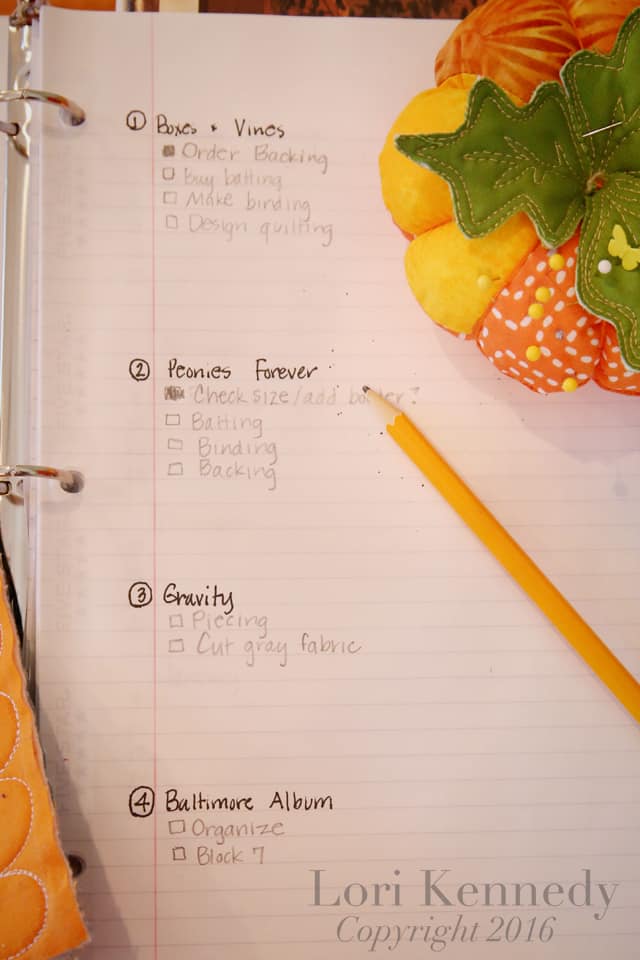 ① Boxes + Vines
Order Backing
Buy batting
Make binding
Design quilting
② Peonies Forever
Check size/add border?
Batting
Binding
Backing
③ Gravity
Piecing
Cut gray fabric
④ Baltimore Album
Organize
Block 7
Lori Kennedy
Copyright 2016